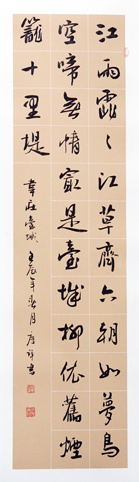 江雨霏〻江草齊六朝如夢鳥
空啼無情寂是臺城柳依舊煙
籠十里堤
韋莊臺城 壬辰年月書